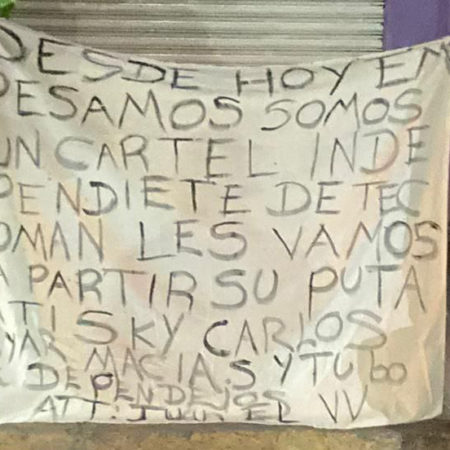 DESDE HOY EM
PESAMOS SOMOS
UN CARTEL INDE
PENDIETE DE TEC
OMAN LES VAMOS
A PARTIR SU PUTA
TISKY CARLOS
MACIAS Y TU
DE PENDEJOS
ATT: EL VV